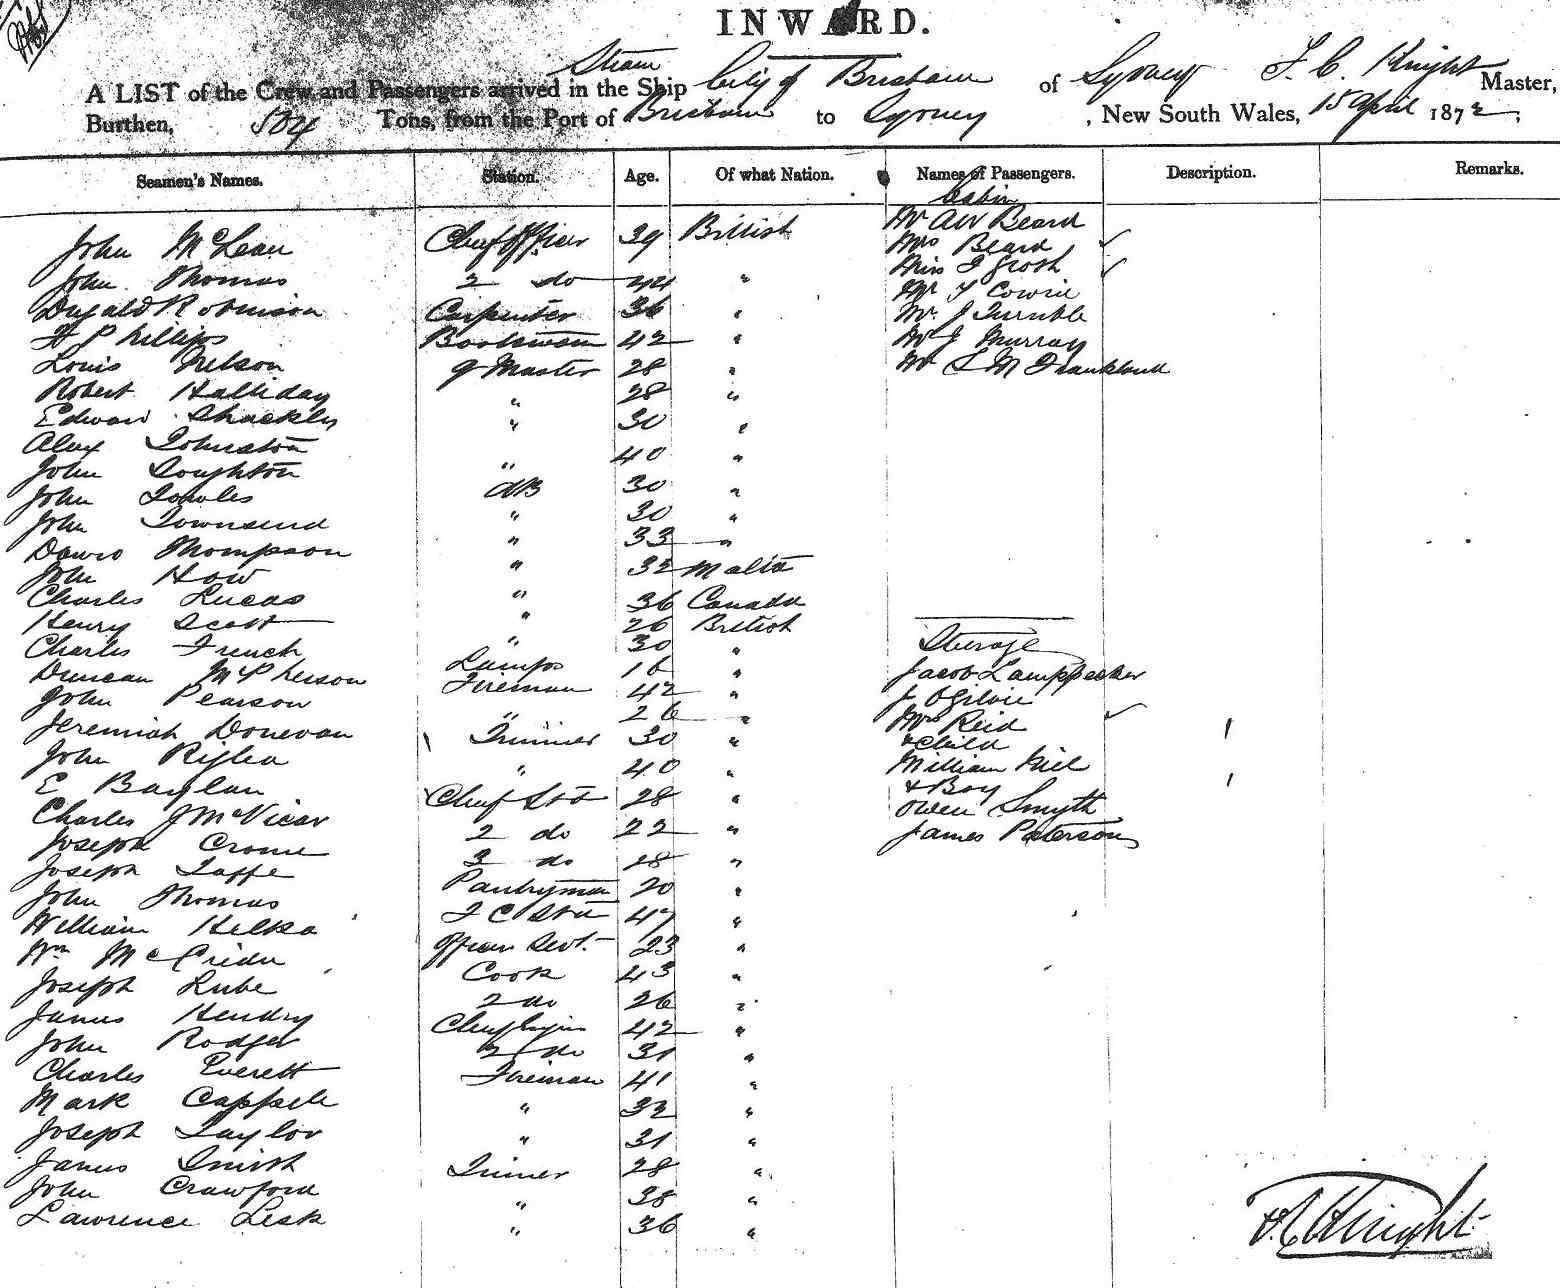 INWARD.
Steam
A LIST of the Crew and Passengers arrived in the Ship City of Brisbane of Sydney F. C. Knight Master,
Burthen, 504 Tons, from the Port of Brisbane to Sydney , New South Wales, 15 April 1872,
Seamen's Names. Station. Age. Of what Nation. Names of Passengers. Description. Remarks.
Cabin
John McLean Chief Officer 39 British Mr AW Beard
Mrs Beard ✓
John Thomas 2 do 44 " Miss Grosh ✓
Dugald Robinson Carpenter 36 " Mr T Cowrie
Phillips Boatswain 42 " Mr J Turnble
Louis Nelson Q Master 28 " Mr J Murray
Robert Halliday " 28 " Mr S M Frankland
Edward Shackley " 30 "
Alex Johnston " 40 "
John Doughton AB 30 "
John Towles " 30 "
John Townsend " 33 "
David Thompson " 32 Malta
John How " 36 Canada
Charles Lucas " 26 British
Henry Scott " 30 "
Charles French Lamps 16 " Steerage
Duncan McPherson Fireman 42 " Jacob Lamppecker
John Pearson " 26 " J Ogilvie
Jeremiah Donevan Trimmer 30 " Mrs Reid ✓
& Child 1
John " 40 " William
E Baylan Chief Std 28 " & Boy 1
Charles J McVicar 2 do 22 " Owen Smyth
Joseph Crome 3 do 28 " James Paterson
Joseph Taffe Pantryman 20 "
John Thomas F C Std 47 "
William Officer Servt. 23 "
Wm Cook 43 "
Joseph Lube 2 do 26 "
James Hendry Chief Engin 42 "
John Rodger 2 do 31 "
Charles Everett Fireman 41 "
Mark " 32 "
Joseph Taylor " 31 "
James Smith Trimer 28 "
John Crawford " 38 "
Lawrence Lesk " 36 "
F. C. Knight